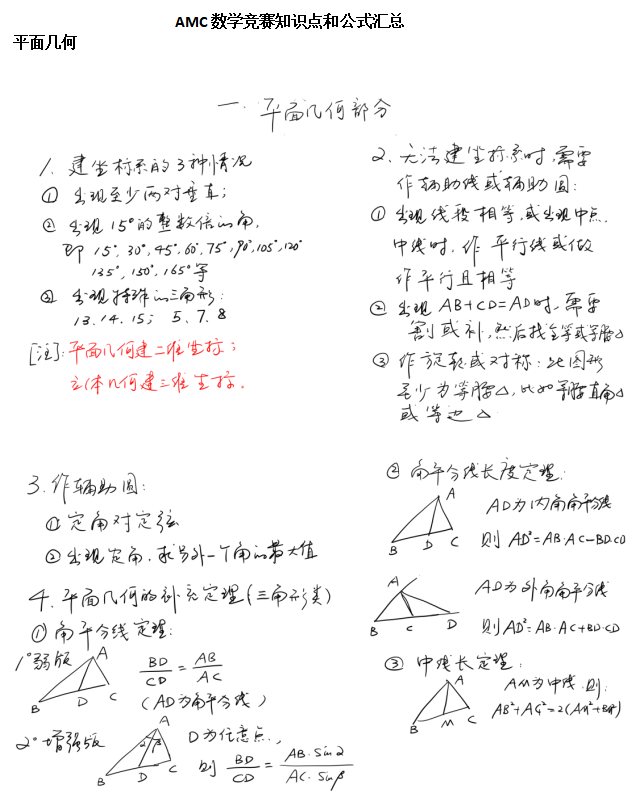 AMC 数学竞赛知识点和公式汇总
平面几何
一. 平面几何部分
1. 建坐标系的3种情况
① 出现至少两对垂直;
② 出现15°的整数倍的角,
即 15°, 30°, 45°, 60°, 75°, 90°, 105°, 120°
135°, 150°, 165° 等
③ 出现特殊的三角形:
13. 14. 15; 5. 7. 8
[注]: 平面几何建二维坐标;
立体几何建三维坐标.
2. 无法建坐标系时, 需要
作辅助线或辅助圆:
① 出现线段相等, 或出现中点.
中线时, 作平行线或做
作平行且相等
② 出现 AB+CD=AD时, 需要
割或补, 然后找全等或等腰△
③ 作旋转或对称: 此图形
至少为等腰△, 比如等腰直角△
或等边△
3. 作辅助圆:
① 定角对定弦
② 出现定角, 求另外一个角的最大值
4. 平面几何的补充定理(三角形类)
① 角平分线定理:
1° 弱版
A
B
D
C
BD/CD = AB/AC
(AD为角平分线)
2° 增强版
A
α
β
B
D
C
D为任意点,
则 BD/CD = AB·sinα/AC·sinβ
② 角平分线长度定理:
A
B
D
C
AD为内角角平分线
则 AD²=AB·AC−BD·CD
A
B
C
D
AD为外角角平分线
则 AD²=AB·AC+BD·CD
③ 中线长定理:
A
B
M
C
AM为中线. 则:
AB²+AC²=2(AM²+BM²)